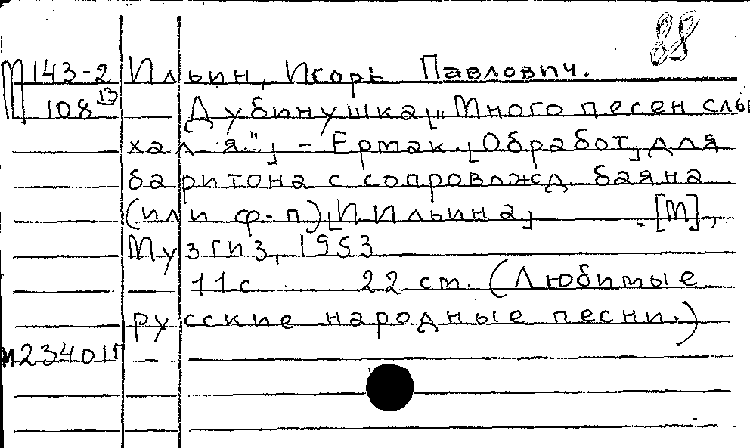 88
М 143-2 Ильин, Игорь Павлович.
108 13 Дубинушка [„Много песен слы
хал я."] - Ермак. [Обработ] для
баритона с сопровожд. баяна
(или ф-п) [И. Ильина] . [М],
Музгиз, 1953
11с 22 см. (Любимые
русские народные песни.)
м23401п -